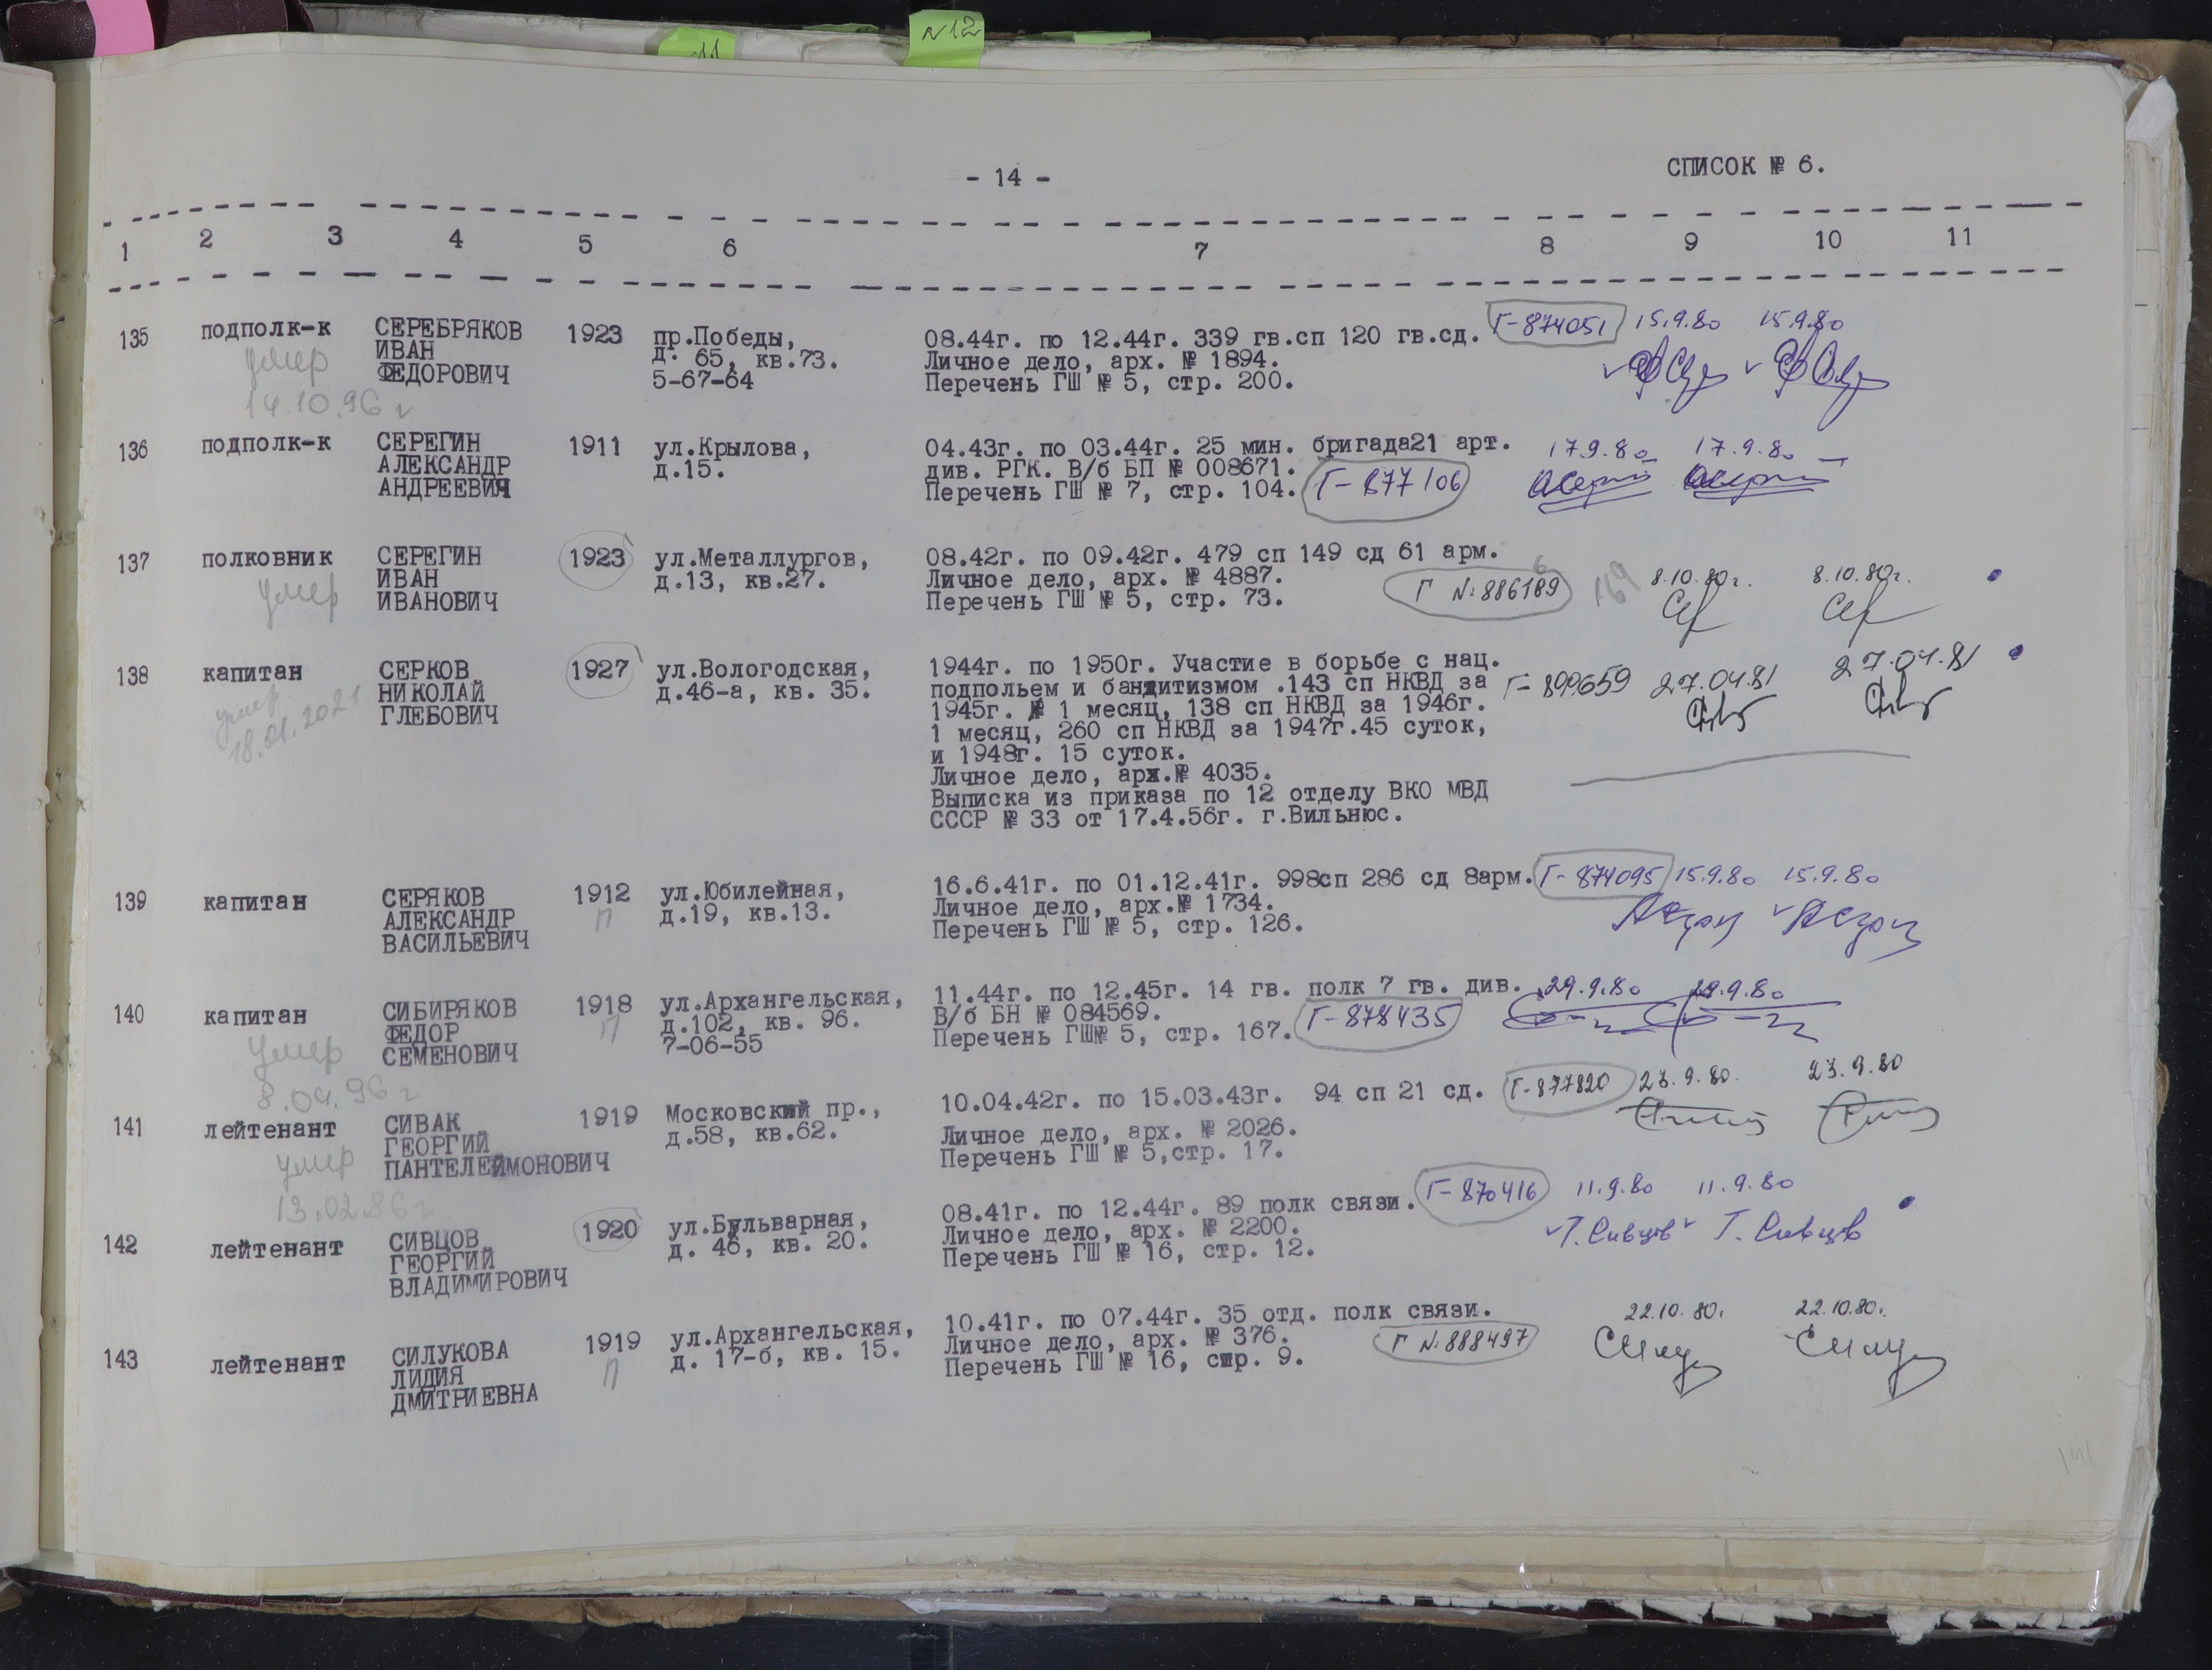 N12
11
- 14 -
СПИСОК № 6.
1 2 3 4 5 6 7 8 9 10 11
135 подполк-к СЕРЕБРЯКОВ 1923 пр.Победы, 08.44г. по 12.44г. 339 гв.сп 120 гв.сд. Г-874051 15.9.80 15.9.80
умер ИВАН д. 65, кв.73. Личное дело, арх. № 1894.
ФЕДОРОВИЧ 5-67-64 Перечень ГШ № 5, стр. 200.
14.10.96 г
136 подполк-к СЕРЕГИН 1911 ул.Крылова, 04.43г. по 03.44г. 25 мин. бригада21 арт. 17.9.80 17.9.80
АЛЕКСАНДР д.15. див. РГК. В/б БП № 008671.
АНДРЕЕВИЧ Перечень ГШ № 7, стр. 104. Г-877106
137 полковник СЕРЕГИН 1923 ул.Металлургов, 08.42г. по 09.42г. 479 сп 149 сд 61 арм.
умер ИВАН д.13, кв.27. Личное дело, арх. № 4887. 6 169 8.10.80г. 8.10.80г.
ИВАНОВИЧ Перечень ГШ № 5, стр. 73. Г №886189
138 капитан СЕРКОВ 1927 ул.Вологодская, 1944г. по 1950г. Участие в борьбе с нац. 27.04.81
умер НИКОЛАЙ д.46-а, кв. 35. подпольем и бандитизмом .143 сп НКВД за Г-899659 27.04.81
18.01.2021 ГЛЕБОВИЧ 1945г. 1 месяц, 138 сп НКВД за 1946г.
1 месяц, 260 сп НКВД за 1947г.45 суток,
и 1948г. 15 суток.
Личное дело, арх.№ 4035.
Выписка из приказа по 12 отделу ВКО МВД
СССР № 33 от 17.4.56г. г.Вильнюс.
139 капитан СЕРЯКОВ 1912 ул.Юбилейная, 16.6.41г. по 01.12.41г. 998сп 286 сд 8арм. Г-874095 15.9.80 15.9.80
АЛЕКСАНДР п д.19, кв.13. Личное дело, арх.№ 1734.
ВАСИЛЬЕВИЧ Перечень ГШ № 5, стр. 126.
140 капитан СИБИРЯКОВ 1918 ул.Архангельская, 11.44г. по 12.45г. 14 гв. полк 7 гв. див. 29.9.80 29.9.80
умер ФЕДОР п д.102, кв. 96. В/б БН № 084569.
СЕМЕНОВИЧ 7-06-55 Перечень ГШ№ 5, стр. 167. Г-878435
8.04.96 г
141 лейтенант СИВАК 1919 Московский пр., 10.04.42г. по 15.03.43г. 94 сп 21 сд. Г-877820 23.9.80. 23.9.80
умер ГЕОРГИЙ д.58, кв.62. Личное дело, арх. № 2026.
ПАНТЕЛЕЙМОНОВИЧ Перечень ГШ № 5,стр. 17.
13.02.86 г
142 лейтенант СИВЦОВ 1920 ул.Бульварная, 08.41г. по 12.44г. 89 полк связи. Г-870416 11.9.80 11.9.80
ГЕОРГИЙ д. 46, кв. 20. Личное дело, арх. № 2200. Г. Сивцов Г. Сивцов
ВЛАДИМИРОВИЧ Перечень ГШ № 16, стр. 12.
143 лейтенант СИЛУКОВА 1919 ул.Архангельская, 10.41г. по 07.44г. 35 отд. полк связи. 22.10.80. 22.10.80.
ЛИДИЯ п д. 17-б, кв. 15. Личное дело, арх. № 376. Г №888497
ДМИТРИЕВНА Перечень ГШ № 16, стр. 9.
141